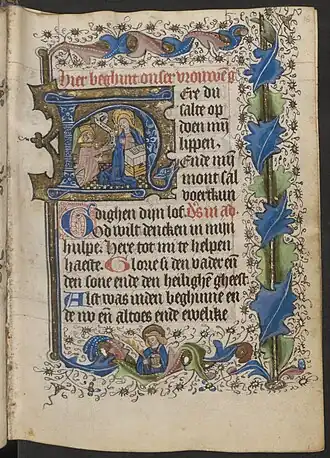 Hier beghint onser vrouwe g
Ere du
salte op
doen mijn
lippen.
Ende mijn
mont sal
voertkun
dighen dijn lof. Ds in ad
God wilt dencken in mijn
hulpe. Here tot mi te helpen
haeste. Glorie si den vader en̄
den sone ende den heilighē gheest
Als t was inden beghinne en
de nv en̄ altoes ende ewelike